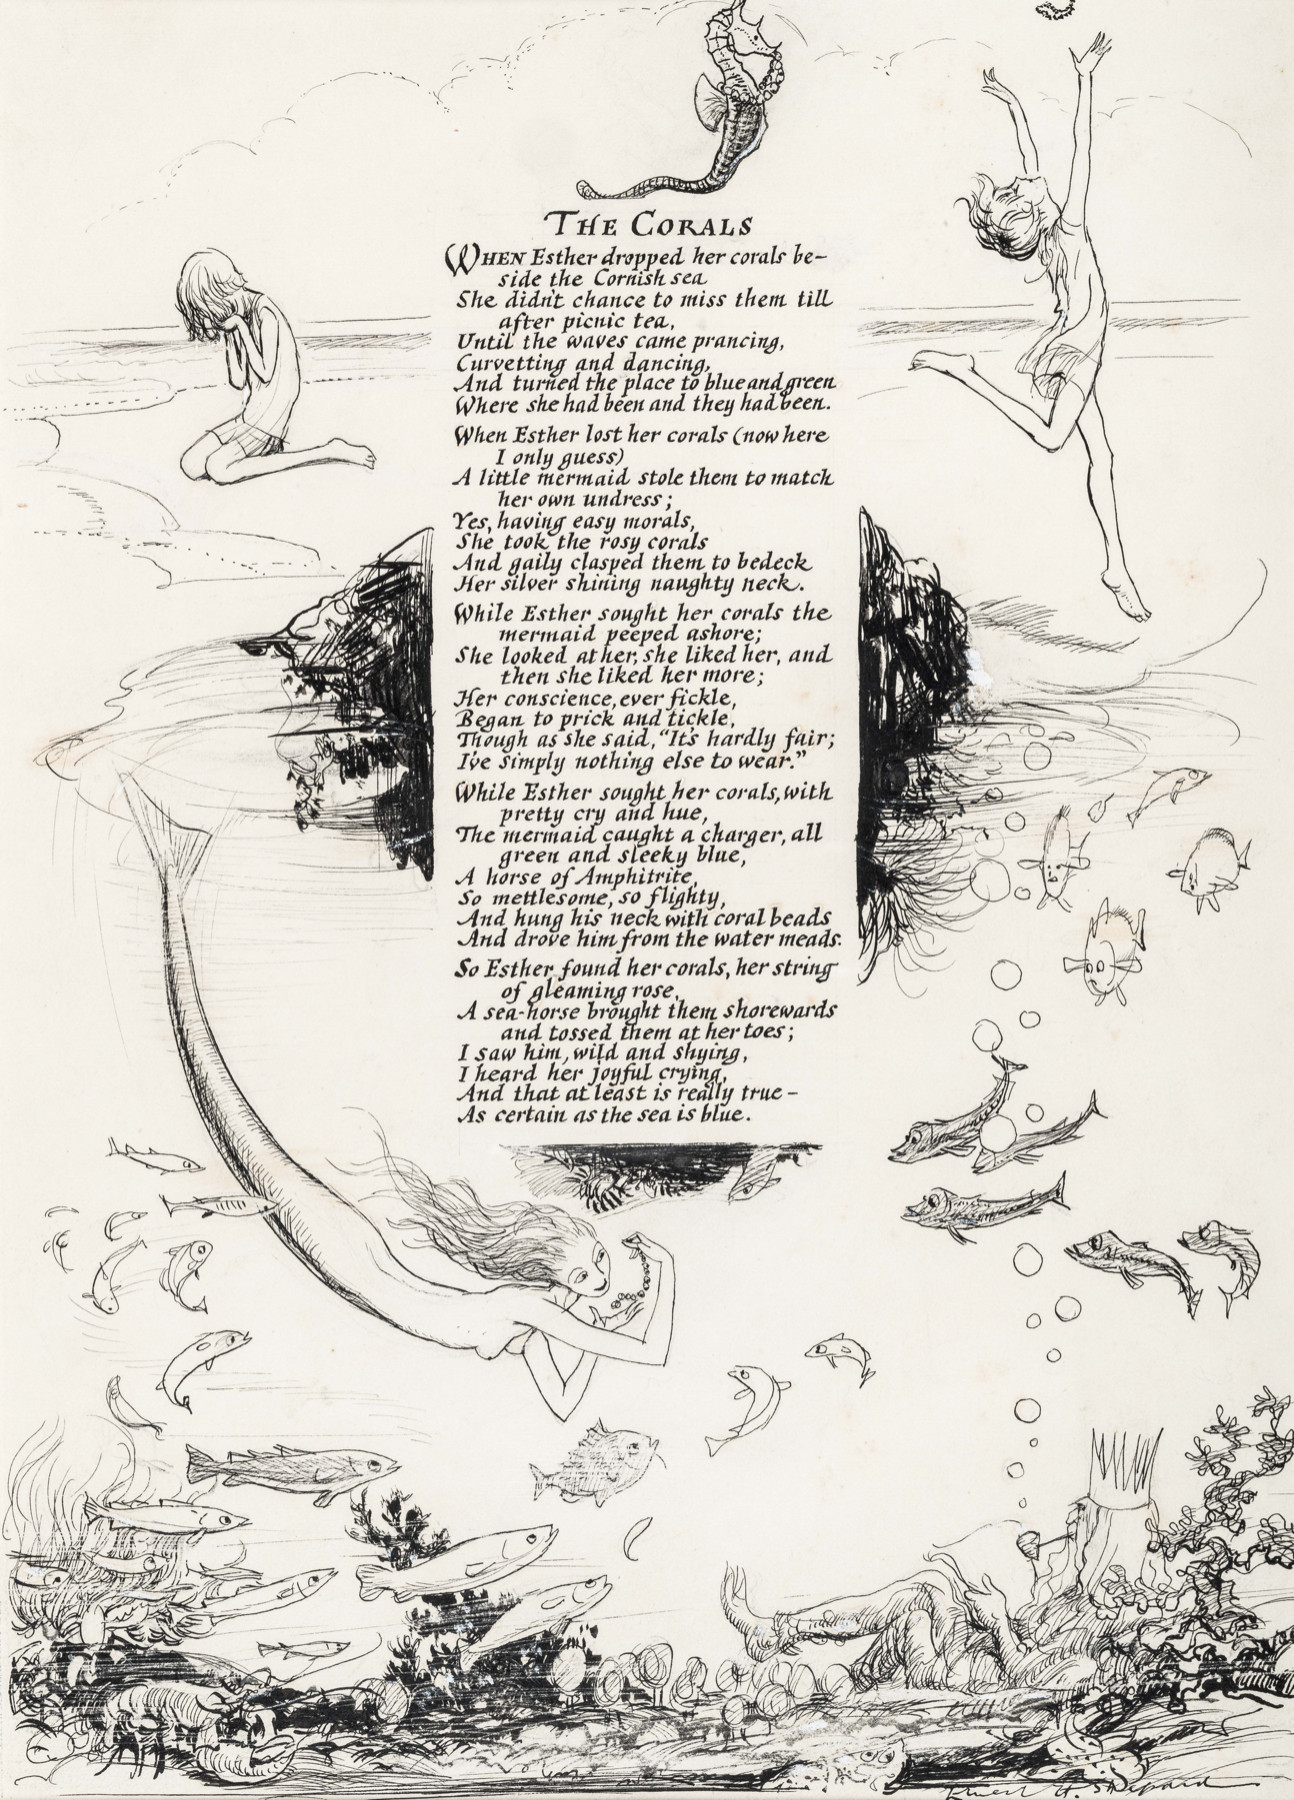 THE CORALS
WHEN Esther dropped her corals be-
side the Cornish sea
She didn't chance to miss them till
after picnic tea,
Until the waves came prancing,
Curvetting and dancing,
And turned the place to blue and green
Where she had been and they had been.
When Esther lost her corals (now here
I only guess)
A little mermaid stole them to match
her own undress;
Yes, having easy morals,
She took the rosy corals
And gaily clasped them to bedeck
Her silver shining naughty neck.
While Esther sought her corals the
mermaid peeped ashore;
She looked at her, she liked her, and
then she liked her more;
Her conscience, ever fickle,
Began to prick and tickle,
Though as she said, "It's hardly fair;
I've simply nothing else to wear."
While Esther sought her corals, with
pretty cry and hue,
The mermaid caught a charger, all
green and sleeky blue,
A horse of Amphitrite,
So mettlesome, so flighty,
And hung his neck with coral beads
And drove him from the water meads.
So Esther found her corals, her string
of gleaming rose,
A sea-horse brought them shorewards
and tossed them at her toes;
I saw him, wild and shying,
I heard her joyful crying,
And that at least is really true –
As certain as the sea is blue.
Ernest H. Shepard